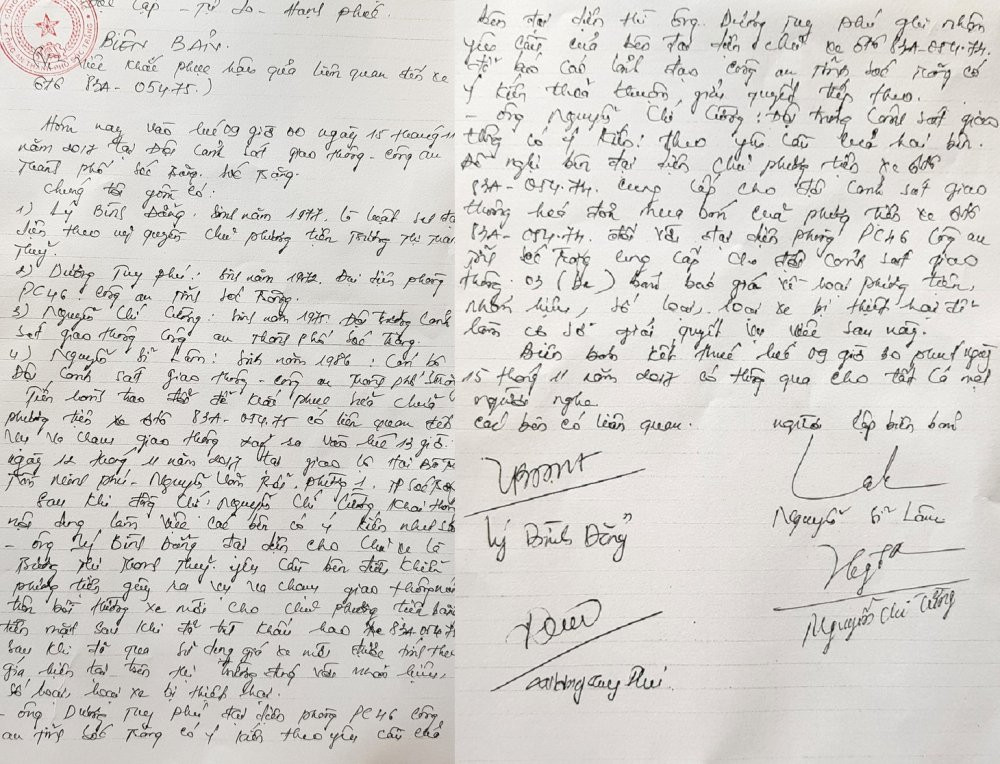 Độc Lập - Tự do - Hạnh phúc.
BIÊN BẢN.
(V/v Việc khắc phục hậu quả liên quan đến xe
ôtô 83A-05475.)
Hôm nay vào lúc 09 giờ 00 ngày 15 tháng 11
năm 2017 tại Đội Cảnh sát giao thông - Công an
Thành phố Sóc Trăng. Sóc Trăng.
Chúng tôi gồm có.
1) Lý Bình Đẳng. sinh năm 1977. là luật sư đại
diện theo uỷ quyền chủ phương tiện Trương Thị Thanh
Thuỷ.
2) Dương Tuy Phú: sinh năm 1972. Đại diện phòng
PC46. Công an tỉnh Sóc Trăng.
3) Nguyễn Chí Cường: sinh năm 1975. Đội trưởng Cảnh
sát giao thông Công an Thành phố Sóc Trăng.
4) Nguyễn Sĩ Lâm: sinh năm 1986: Cán bộ
Đội Cảnh sát giao thông - công an Thành phố Sóc
Tiến hành trao đổi để khắc phục sửa chữa
phương tiện xe ôtô 83A-05475 có liên quan đến
vụ va chạm giao thông xảy ra vào lúc 13 giờ.
ngày 12 tháng 11 năm 2017 tại giao lộ Hai Bà Trưng
Trần Minh Phú - Nguyễn Văn Trỗi, phường 1. TP Sóc Trăng
Sau khi đồng chí: Nguyễn Chí Cường khai thông
nội dung làm việc các bên có ý kiến như sau
- ông Lý Bình Đẳng đại diện cho chủ xe là
Trương Thị Thanh Thuỷ. yêu cầu bên điều khiển
phương tiện gây ra vụ va chạm giao thông
tiền bồi thường xe mới cho chủ phương tiện bằng
tiền mặt sau khi đã trừ khấu hao xe 83A-05474
sau khi đã qua sử dụng giá xe mới được tính theo
giá hiện tại trên thị trường đúng với nhãn hiệu,
số loại, loại xe bị thiệt hại.
- ông Dương Tuy Phú đại diện phòng PC46 Công
an tỉnh Sóc Trăng có ý kiến theo yêu cầu của
bên đại diện thì ông. Dương Tuy Phú ghi nhận
yêu cầu của bên đại diện chủ xe ôtô 83A-054.74.
để báo cáo lãnh đạo công an tỉnh Sóc Trăng có
ý kiến thoả thuận giải quyết tiếp theo.
- ông Nguyễn Chí Cường: Đội trưởng Cảnh sát giao
thông có ý kiến: theo yêu cầu của hai bên.
Đề nghị bên đại diện chủ phương tiện xe ôtô
83A-054.74. cung cấp cho đội Cảnh sát giao
thông hoá đơn mua bán của phương tiện xe ôtô
83A-054.74. đối với đại diện phòng PC46 Công an
tỉnh Sóc Trăng cung cấp cho đội Cảnh sát giao
thông. 03 (ba) bảng báo giá xe - loại phương tiện,
nhãn hiệu, số loại, loại xe bị thiệt hại để
làm cơ sở giải quyết vụ việc sau này.
Biên bản kết thúc lúc 09 giờ 30 phút ngày
15 tháng 11 năm 2017 có thông qua cho tất cả mọi
người nghe.
các bên có liên quan. người lập biên bản
Lý Bình Đẳng
Nguyễn Sĩ Lâm
Nguyễn Chí Cường
Dương Tuy Phú.